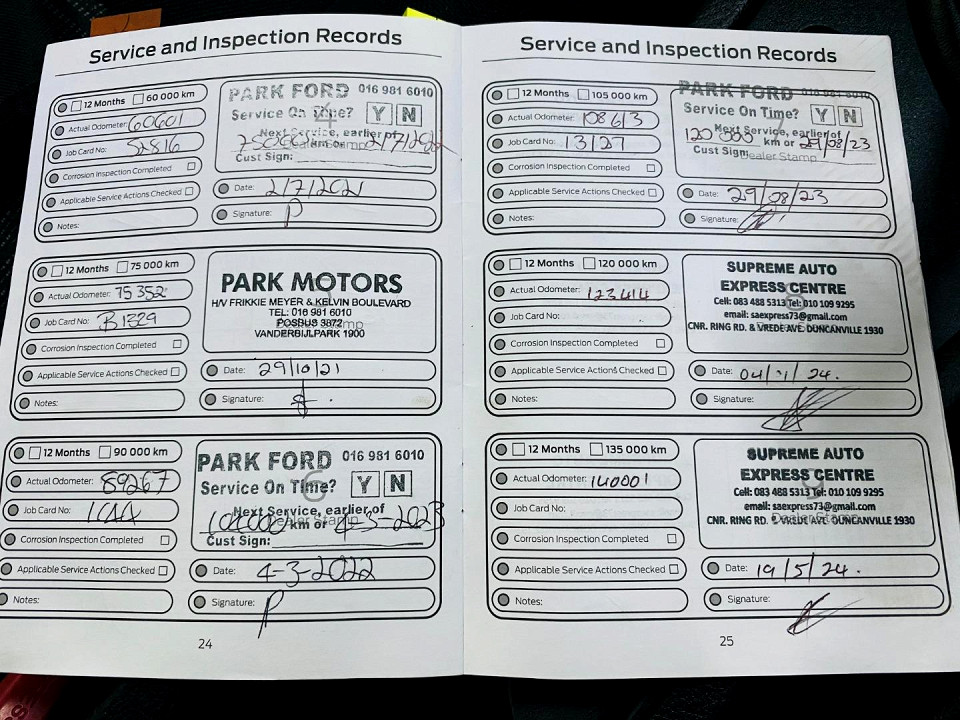 Service and Inspection Records
12 Months 60 000 km
Actual Odometer: 60601
Job Card No: 52816
Corrosion Inspection Completed
Applicable Service Actions Checked
Notes:
PARK FORD 016 981 6010
Service On Time? Y N
Next Service, earlier of
km or 2/7/2022
Cust Sign:
Date: 2/7/2021
Signature:
12 Months 75 000 km
Actual Odometer: 75352
Job Card No: B1329
Corrosion Inspection Completed
Applicable Service Actions Checked
Notes:
PARK MOTORS
H/V FRIKKIE MEYER & KELVIN BOULEVARD
TEL: 016 981 6010
POSBUS 3872
VANDERBIJLPARK 1900
Date: 29/10/21
Signature:
12 Months 90 000 km
Actual Odometer: 89267
Job Card No:
Corrosion Inspection Completed
Applicable Service Actions Checked
Notes:
PARK FORD 016 981 6010
Service On Time? Y N
Next Service, earlier of
km or 4-3-2023
Cust Sign:
Date: 4-3-2022
Signature:
24
Service and Inspection Records
12 Months 105 000 km
Actual Odometer: 108613
Job Card No: 13127
Corrosion Inspection Completed
Applicable Service Actions Checked
Notes:
PARK FORD 016 981 6010
Service On Time? Y N
Next Service, earlier of
120 000 km or 29/08/23
Cust Sign:
Dealer Stamp
Date: 29/08/23
Signature:
12 Months 120 000 km
Actual Odometer: 123414
Job Card No:
Corrosion Inspection Completed
Applicable Service Actions Checked
Notes:
SUPREME AUTO
EXPRESS CENTRE
Cell: 083 488 5313 Tel: 010 109 9295
email: saexpress73@gmail.com
CNR. RING RD. & VREDE AVE. DUNCANVILLE 1930
Date: 04/11/24.
Signature:
12 Months 135 000 km
Actual Odometer: 140001
Job Card No:
Corrosion Inspection Completed
Applicable Service Actions Checked
Notes:
SUPREME AUTO
EXPRESS CENTRE
Cell: 083 488 5313 Tel: 010 109 9295
email: saexpress73@gmail.com
CNR. RING RD. & VREDE AVE. DUNCANVILLE 1930
Date: 19/5/24.
Signature:
25